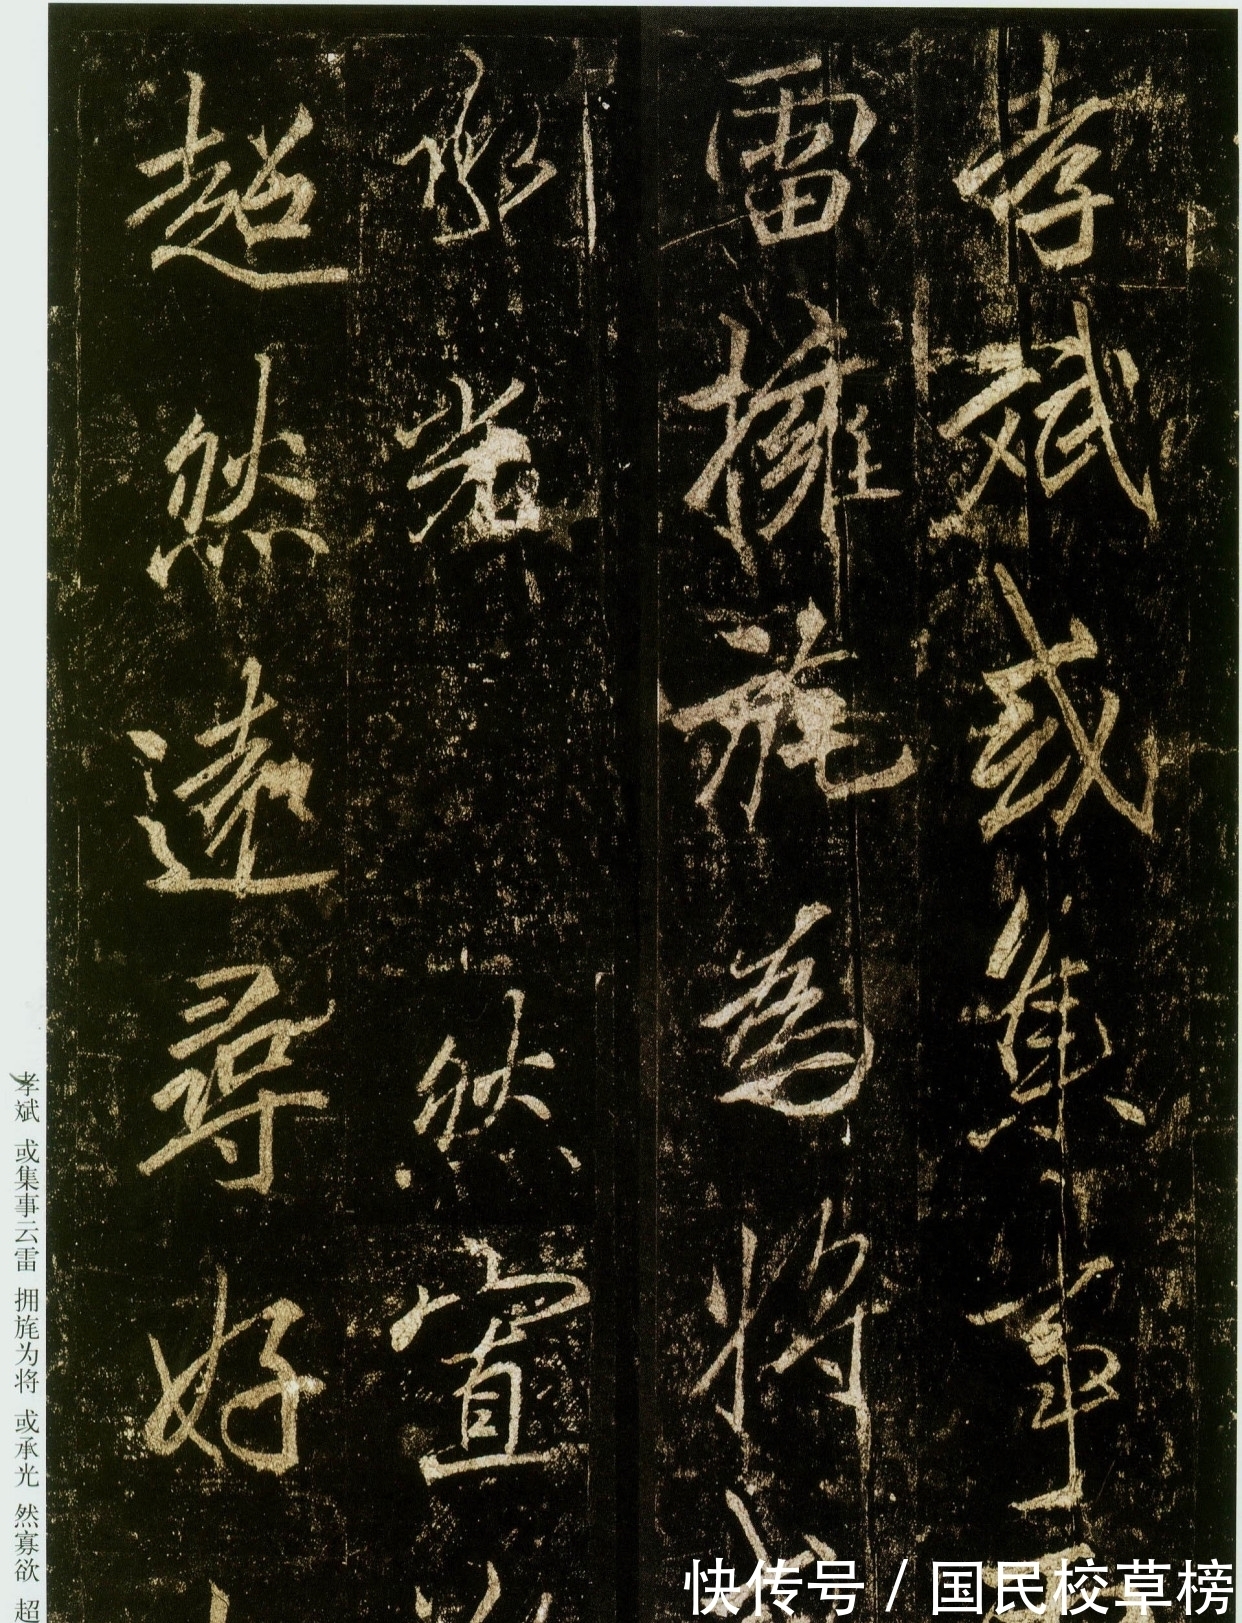 孝斌或集事
雷擁旄為將
承光 然
超然遠尋好
孝斌 或集事云雷 拥旄为将 或承光 然寡欲 超
快传号 / 国民校草榜